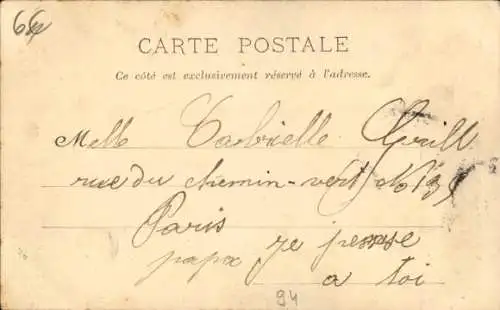 CARTE POSTALE
Ce côté est exclusivement réservé à l'adresse.
Melle Gabrielle
rue du chemin-vert No
Paris
papa je pense
a toi
94